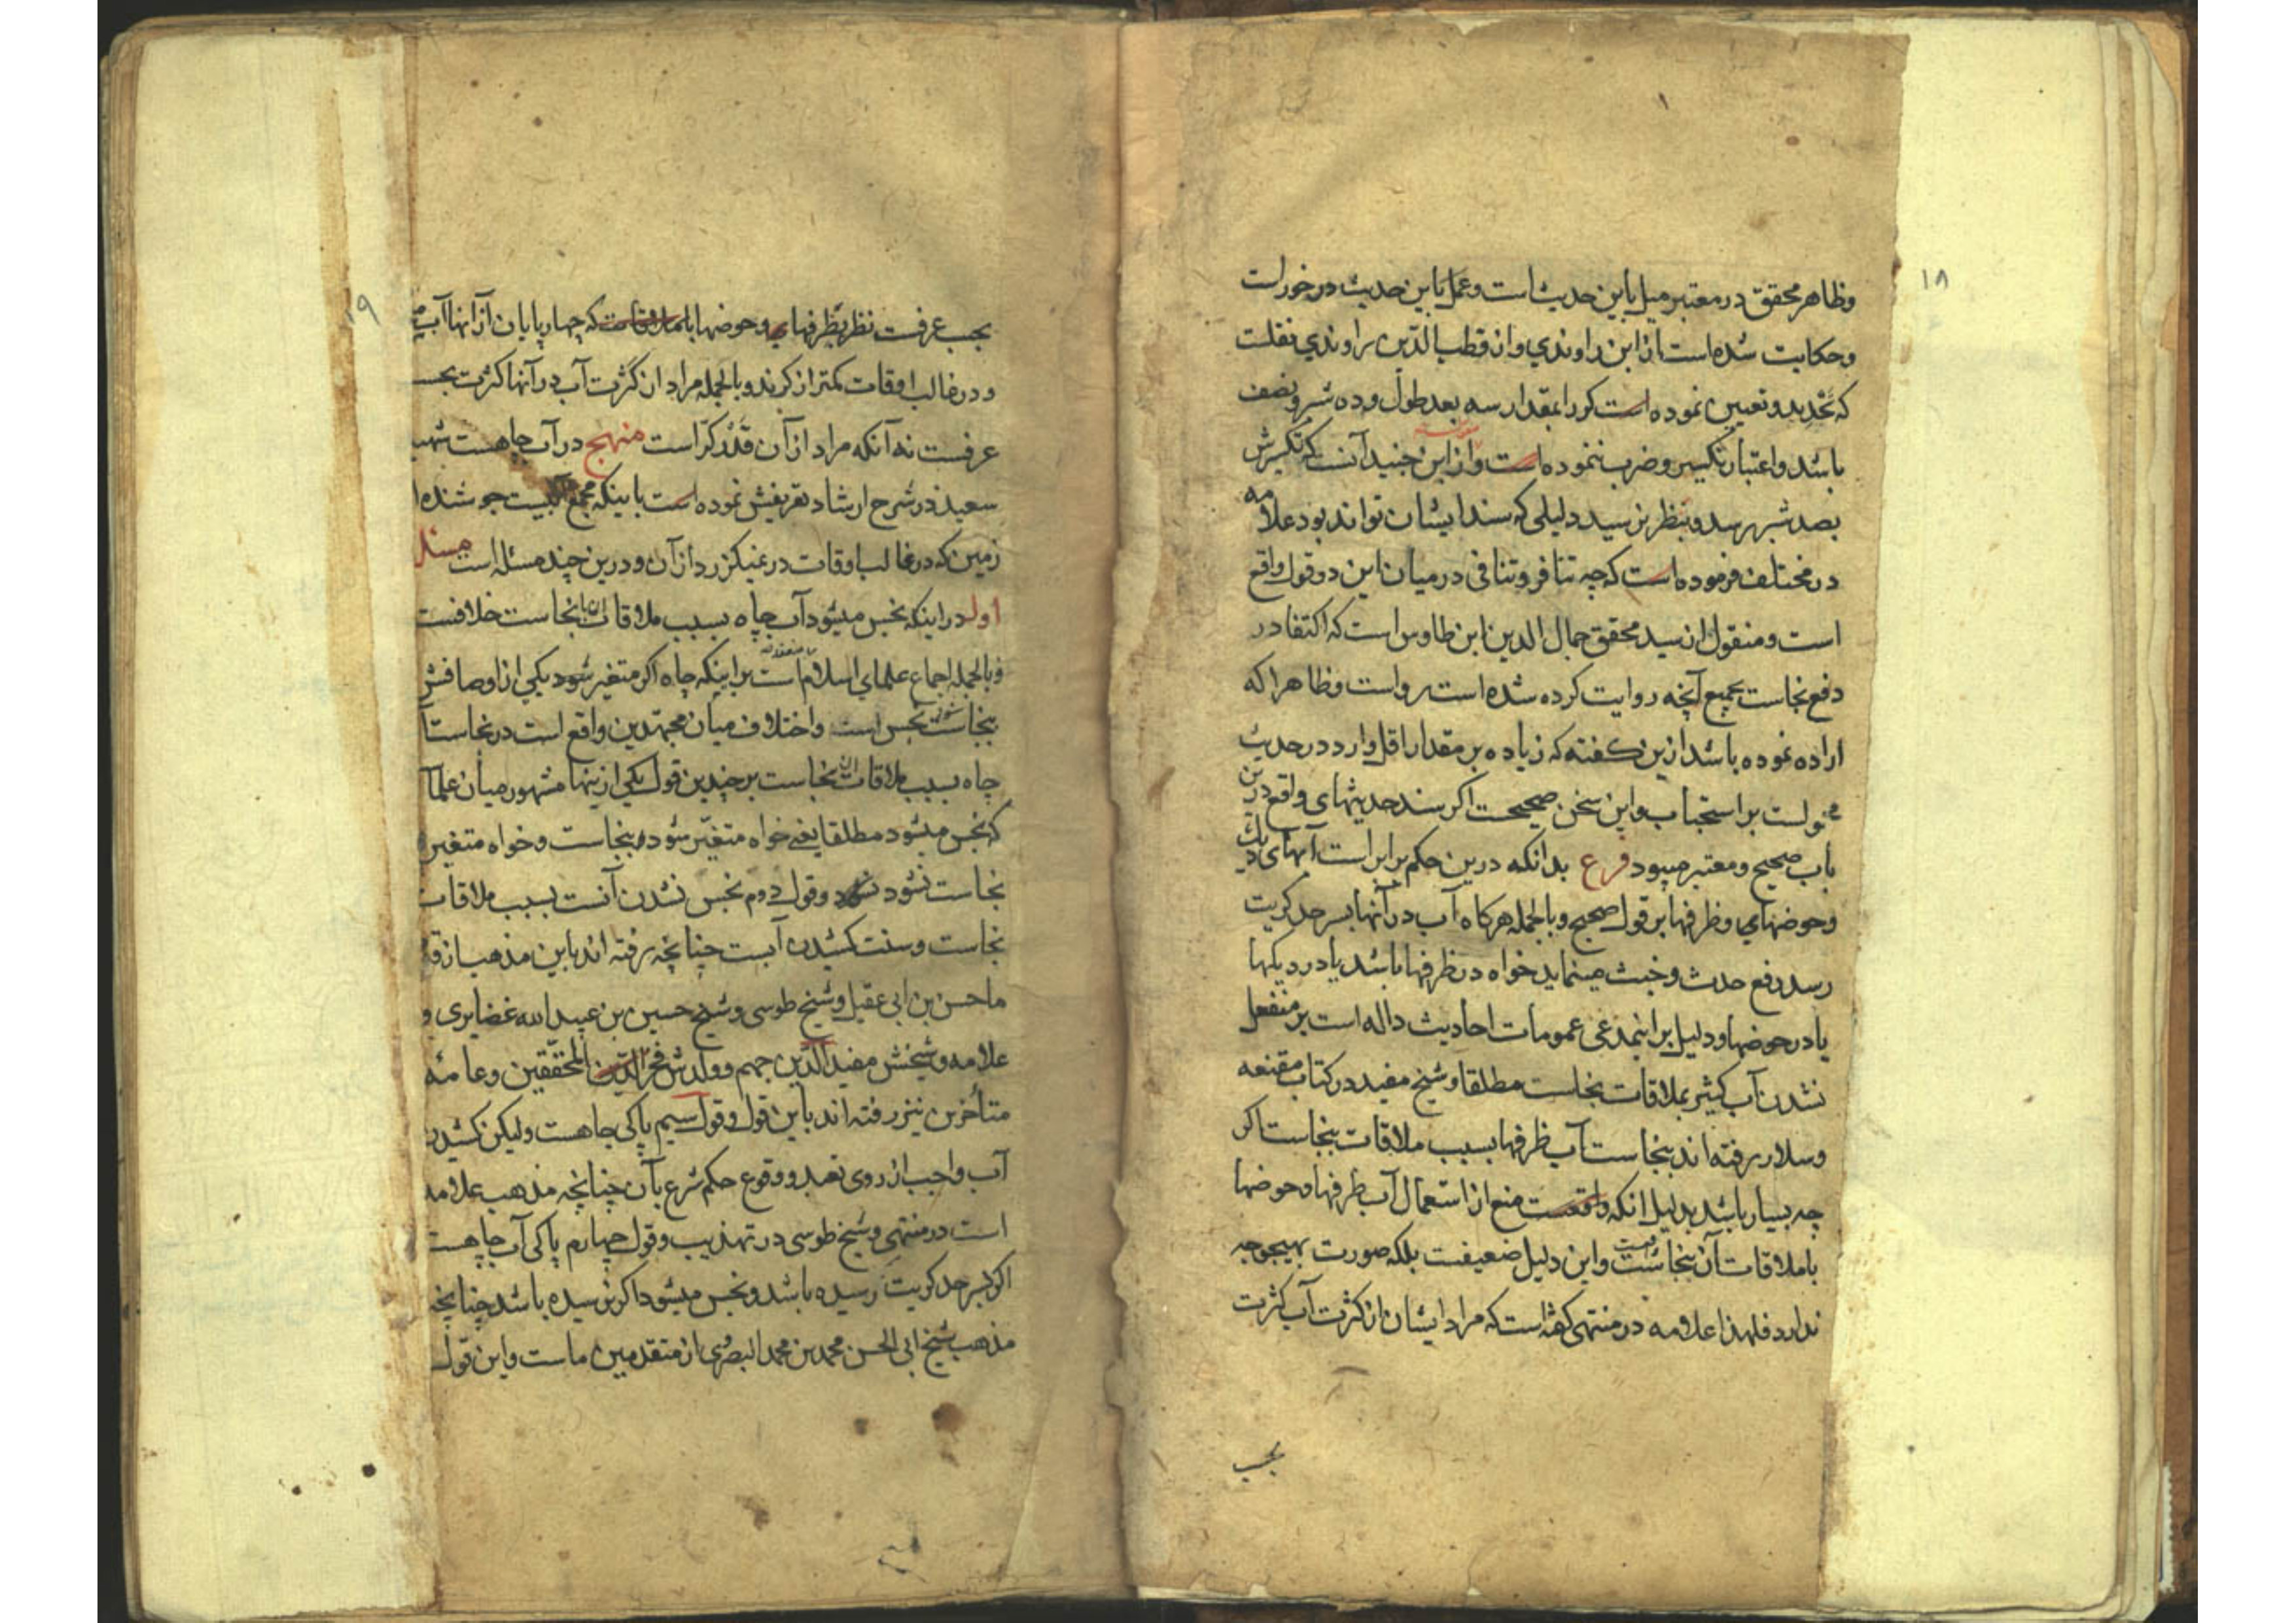 ۱۸
وظاهر محقق در معتبر میل باین حدیث است وعمل باین حدیث در خور است
وحکایت شده است از ابن راوندي واز قطب الدین راوندي نقلست
که تحدید و تعیین نموده است کر را بمقدار سه بعد طول و ده شبر و نصف
باشد و اعتبار تکسیر و ضرب ننموده است و از ابن جنید آنست که تکسیرش
بصد شبر رسد و بنظر نرسید دلیلی که سند ایشان تواند بود علامه
در مختلف فرموده است که چه تنافر و تنافی در میان این دو قول واقع
است و منقول از سید محقق جمال الدین ابن طاوس است که اکتفا در
دفع نجاست بجمیع آنچه روایت کرده شده است رواست وظاهرا که
اراده نموده باشد ازین گفته که زیاده بر مقدار اقل وارد در حدیث
محمولست بر استحباب و این سخن صحیحست اگر سند حدیثهای واقع درین
باب صحیح و معتبر میبود فرع بدانکه درین حکم برابر است آبهای
وحوضهاي و ظرفها بر قول صحیح و بالجمله هرکاه آب در آنها بسر حد کریت
رسد رفع حدث و خبث مینماید خواه در ظرفها باشد یا در دیکها
یا در حوضها و دلیل بر اینمدعی عمومات احادیث داله است بر منفعل
نشدن آب کثیر بملاقات نجاست مطلقا و شیخ مفید در کتاب مقنعه
وسلار رفته اند بنجاست آب ظرفها بسبب ملاقات بنجاست اگر
چه بسیار باشد بدلیل انکه واقعست منع از استعمال آب ظرفها و حوضها
با ملاقات آن بنجاست و این دلیل ضعیفست بلکه صورت بهیچوجه
ندارد فلهذا علامه در منتهی گفته است که مراد ایشان از کثرت آب کثرت
بحسب
۱۹
بحسب عرفست نظر بظرفها و حوضها که چهار پایان از انها آب
و در غالب اوقات کمتر از کرند و بالجمله مراد از کثرت آب در آنها کثرت بحسب
عرفست نه آنکه مراد از آن قدر کر است منهج در آب چاهست شهید
سعید در شرح ارشاد تعریفش نموده است باینکه مجمع آبیست جوشنده از
زمین که در غالب اوقات در نمیکزرد از آن و درین چند مسئله است مسئله
اول در اینکه نجس میشود آب چاه بسبب ملاقات آن با نجاست خلافست
و بالجمله اجماع علماي اسلام منعقد است بر اینکه چاه اگر متغیر شود یکي از اوصافش
بنجاست نجس است و اختلاف میان مجتهدین واقع است در نجاست آب
چاه بسبب ملاقات آن نجاست بر چندین قول یکي از ینها مشهور میان علما
که نجس میشود مطلقا یعنی خواه متغیر شود بنجاست و خواه متغیر
نجاست نشود و قول دوم نجس نشدن آنست بسبب ملاقات
نجاست و سنت کشیدن آبست چنانچه رفته اند باین مذهب از
ما حسن بن ابی عقیل و شیخ طوسی و شیخ حسین بن عبید الله غضایری و
علامه و شیخش مفید الدین جهم و ولدش فخر المحققین و عامه
متأخرین نیز رفته اند باین قول و قول سیم پاکی چاهست ولیکن کشیدن
آب واجب از روی تعبد و وقوع حکم شرع بآن چنانچه مذهب علامه
است در منتهی و شیخ طوسی در تهذیب و قول چهارم پاکی آب چاهست
اگر بسر حد کریت رسیده باشد و نجس میشود اگر نرسیده باشد چنانچه
مذهب شیخ ابی الحسن محمد بن محمد البصروی از متقدمین ماست و این قول